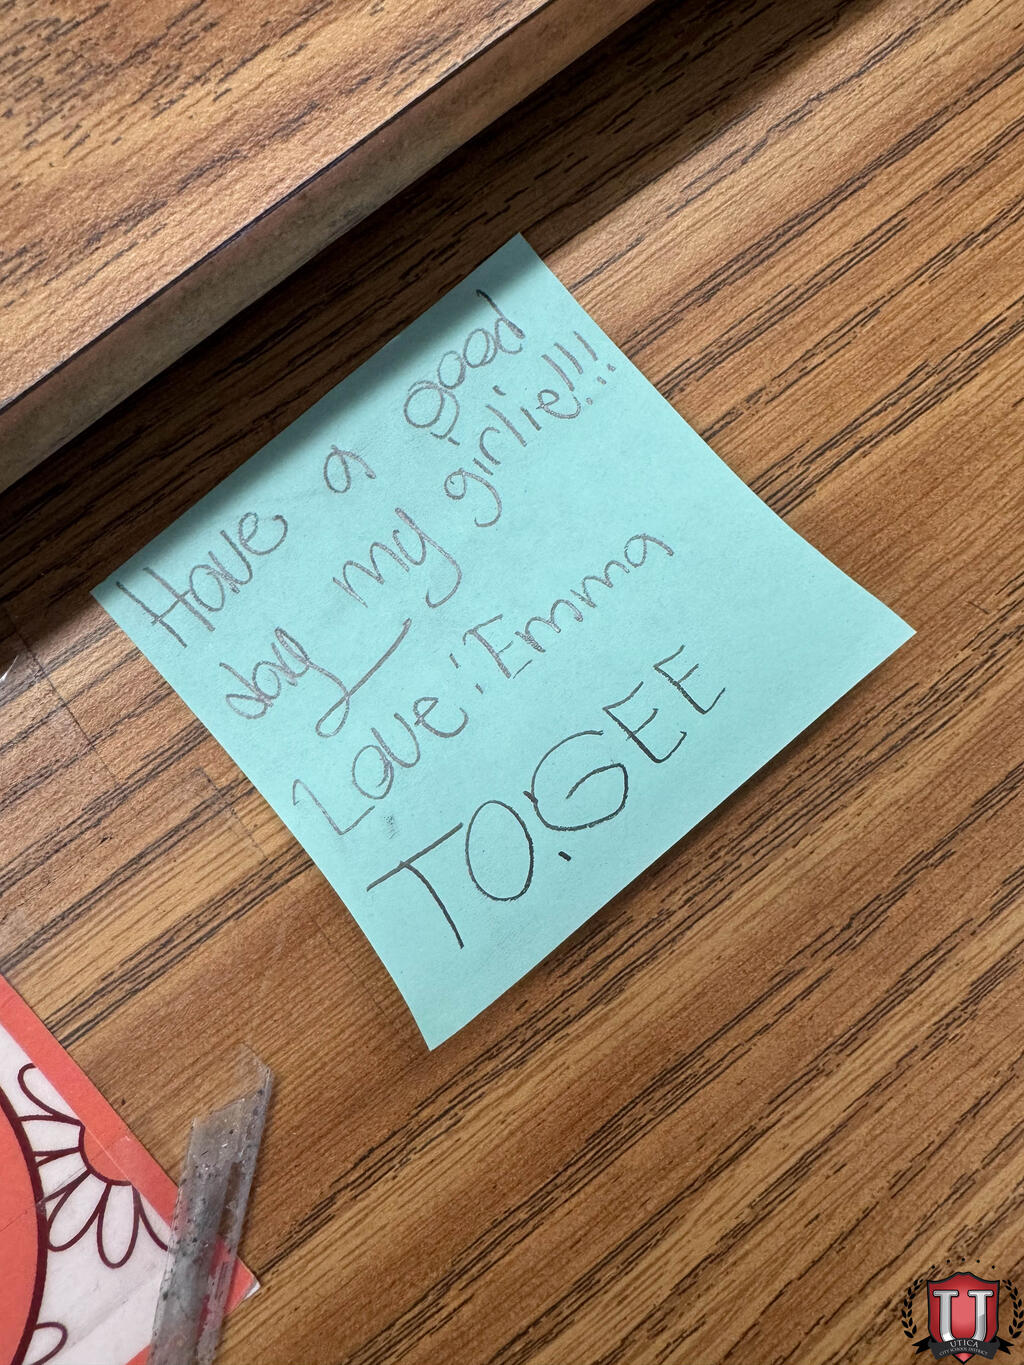 Have a good
day my girlie!!!
Love: Emma
TO:GEE
UTICA
CITY SCHOOL DISTRICT